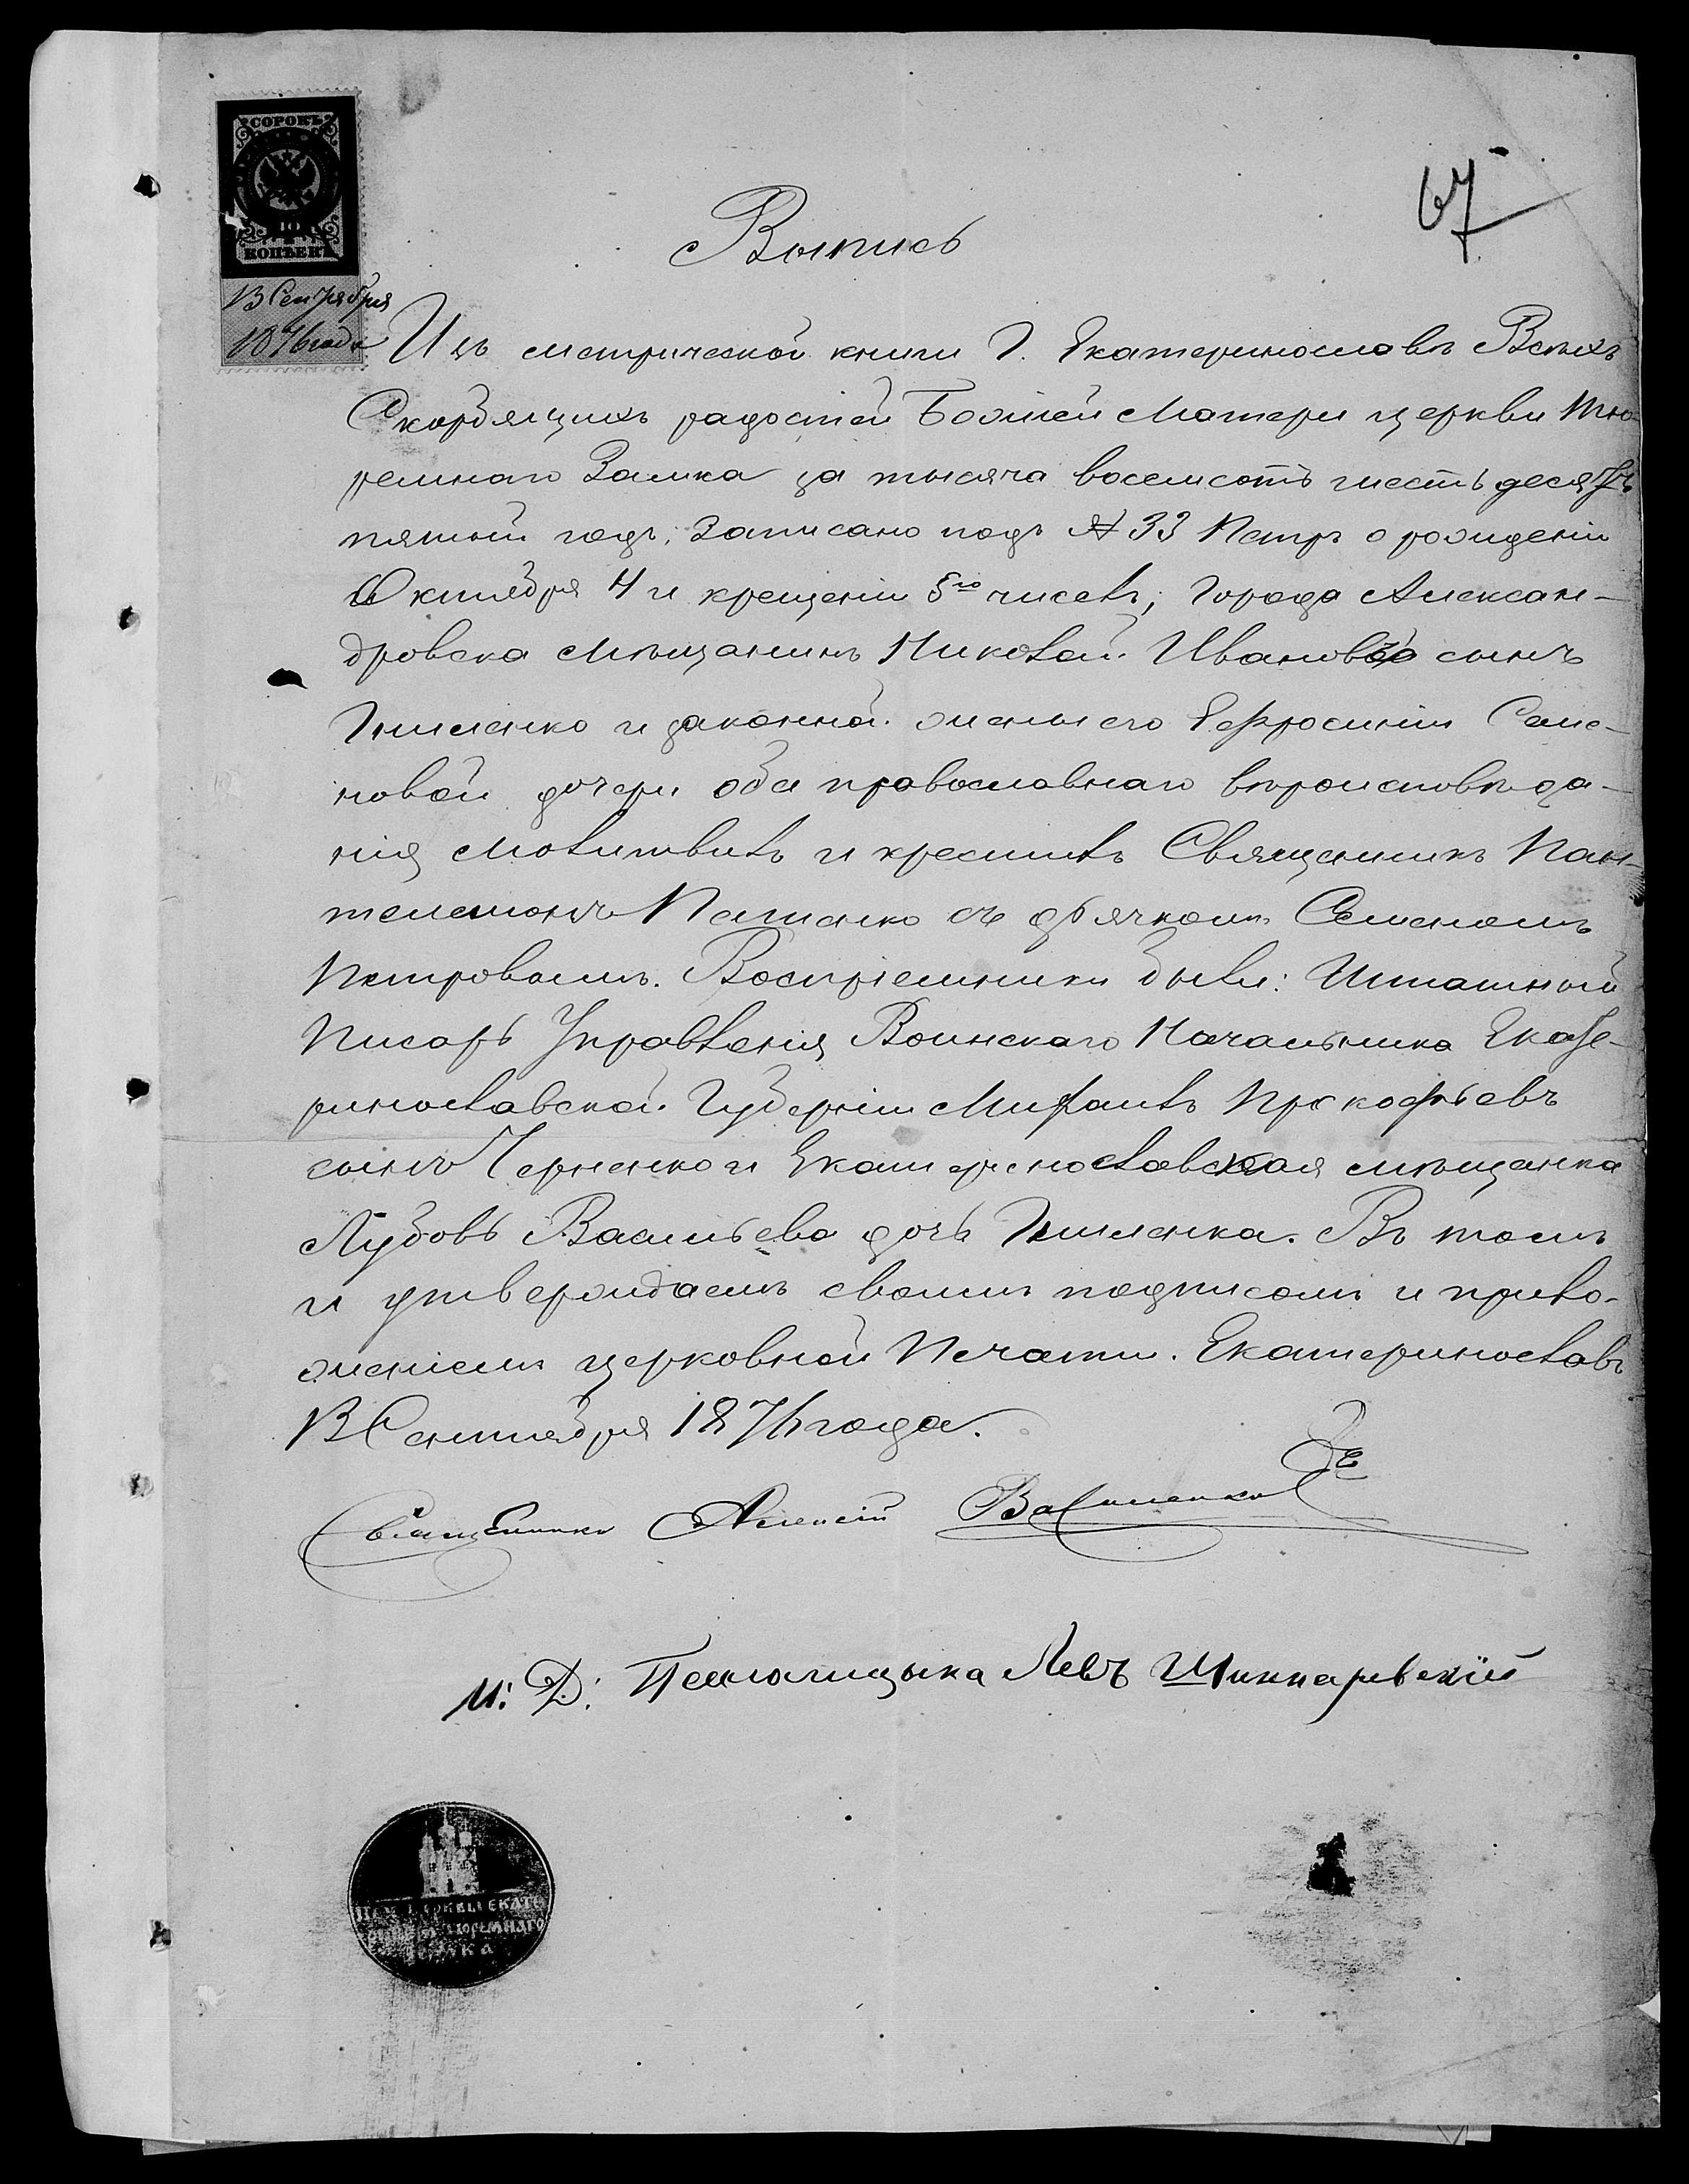 СОРОКЪ
40
КОПѢЕКЪ
13 Сентября
1876 года
67
Выпись
Изъ метрической книги Г. Екатеринослава Всѣхъ
Скорбящихъ радостей Божіей Матери церкви Тю-
ремнаго Замка за тысяча восемсотъ шестьдесятъ
пятый годъ, записано подъ № 33 Петръ о рожденіи
Октября 4 и крещеніи 5го чиселъ; Города Алексан-
дровска Мѣщанинъ Николай Ивановъ сынъ
и законной жены его Ефросиніи Семе-
новой дочери оба православнаго вѣроисповѣда-
нія Молитвилъ и крестилъ Священникъ Пан-
телеимонъ съ дьячкомъ Семеномъ
Петровымъ. Воспріемники были: Штатный
Писарь Управленія Воинскаго Начальника Екате-
ринославской Губерніи Михаилъ Прокофьевъ
сынъ Черненко и Екатеринославская мѣщанка
Лубовь Васильева дочь. Въ томъ
и утверждаемъ своимъ подписомъ и прило-
женіемъ церковной Печати. Екатеринославъ
13 Сентября 1876 года.
Священникъ Алексій Василенко
И: Д: Псаломщыка Левъ
ПЕЧ. ЦЕРКВИ ЕКАТЕ
ТЮРЕМНАГО
ЗАМКА